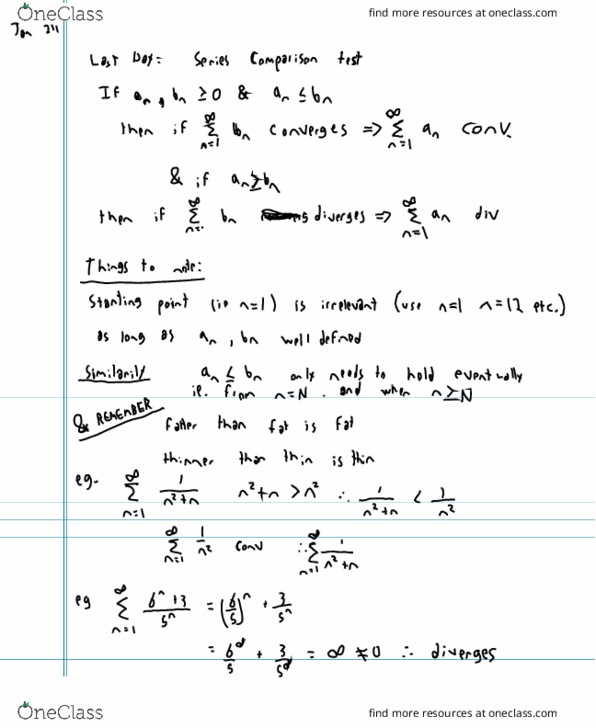 OneClass
find more resources at oneclass.com
Jan 24
Last Day: Series Comparison test
If aₙ, bₙ ≥ 0 & aₙ ≤ bₙ
then if ∞ Σ n=1 bₙ converges ⇒ ∞ Σ n=1 aₙ conv.
& if aₙ ≥ bₙ
then if ∞ Σ n=1 bₙ diverges ⇒ ∞ Σ n=1 aₙ div
Things to note:
Starting point (ie n=1) is irrelevant (use n=1 n=12 etc.)
as long as aₙ, bₙ well defined
Similarily aₙ ≤ bₙ only needs to hold eventually
ie. from n=N. and when n≥N
& REMEMBER
Fatter than fat is Fat
thinner than thin is thin
eg. ∞ Σ n=1 1/(n²+n) n²+n > n² ∴ 1/(n²+n) < 1/n²
∞ Σ n=1 1/n² conv ∴ ∞ Σ n=1 1/(n²+n)
eg ∞ Σ n=1 (6ⁿ+3)/5ⁿ = (6/5)ⁿ + 3/5ⁿ
= 6^∞/5 + 3/5^∞ = ∞ ≠ 0 ∴ diverges
OneClass
find more resources at oneclass.com